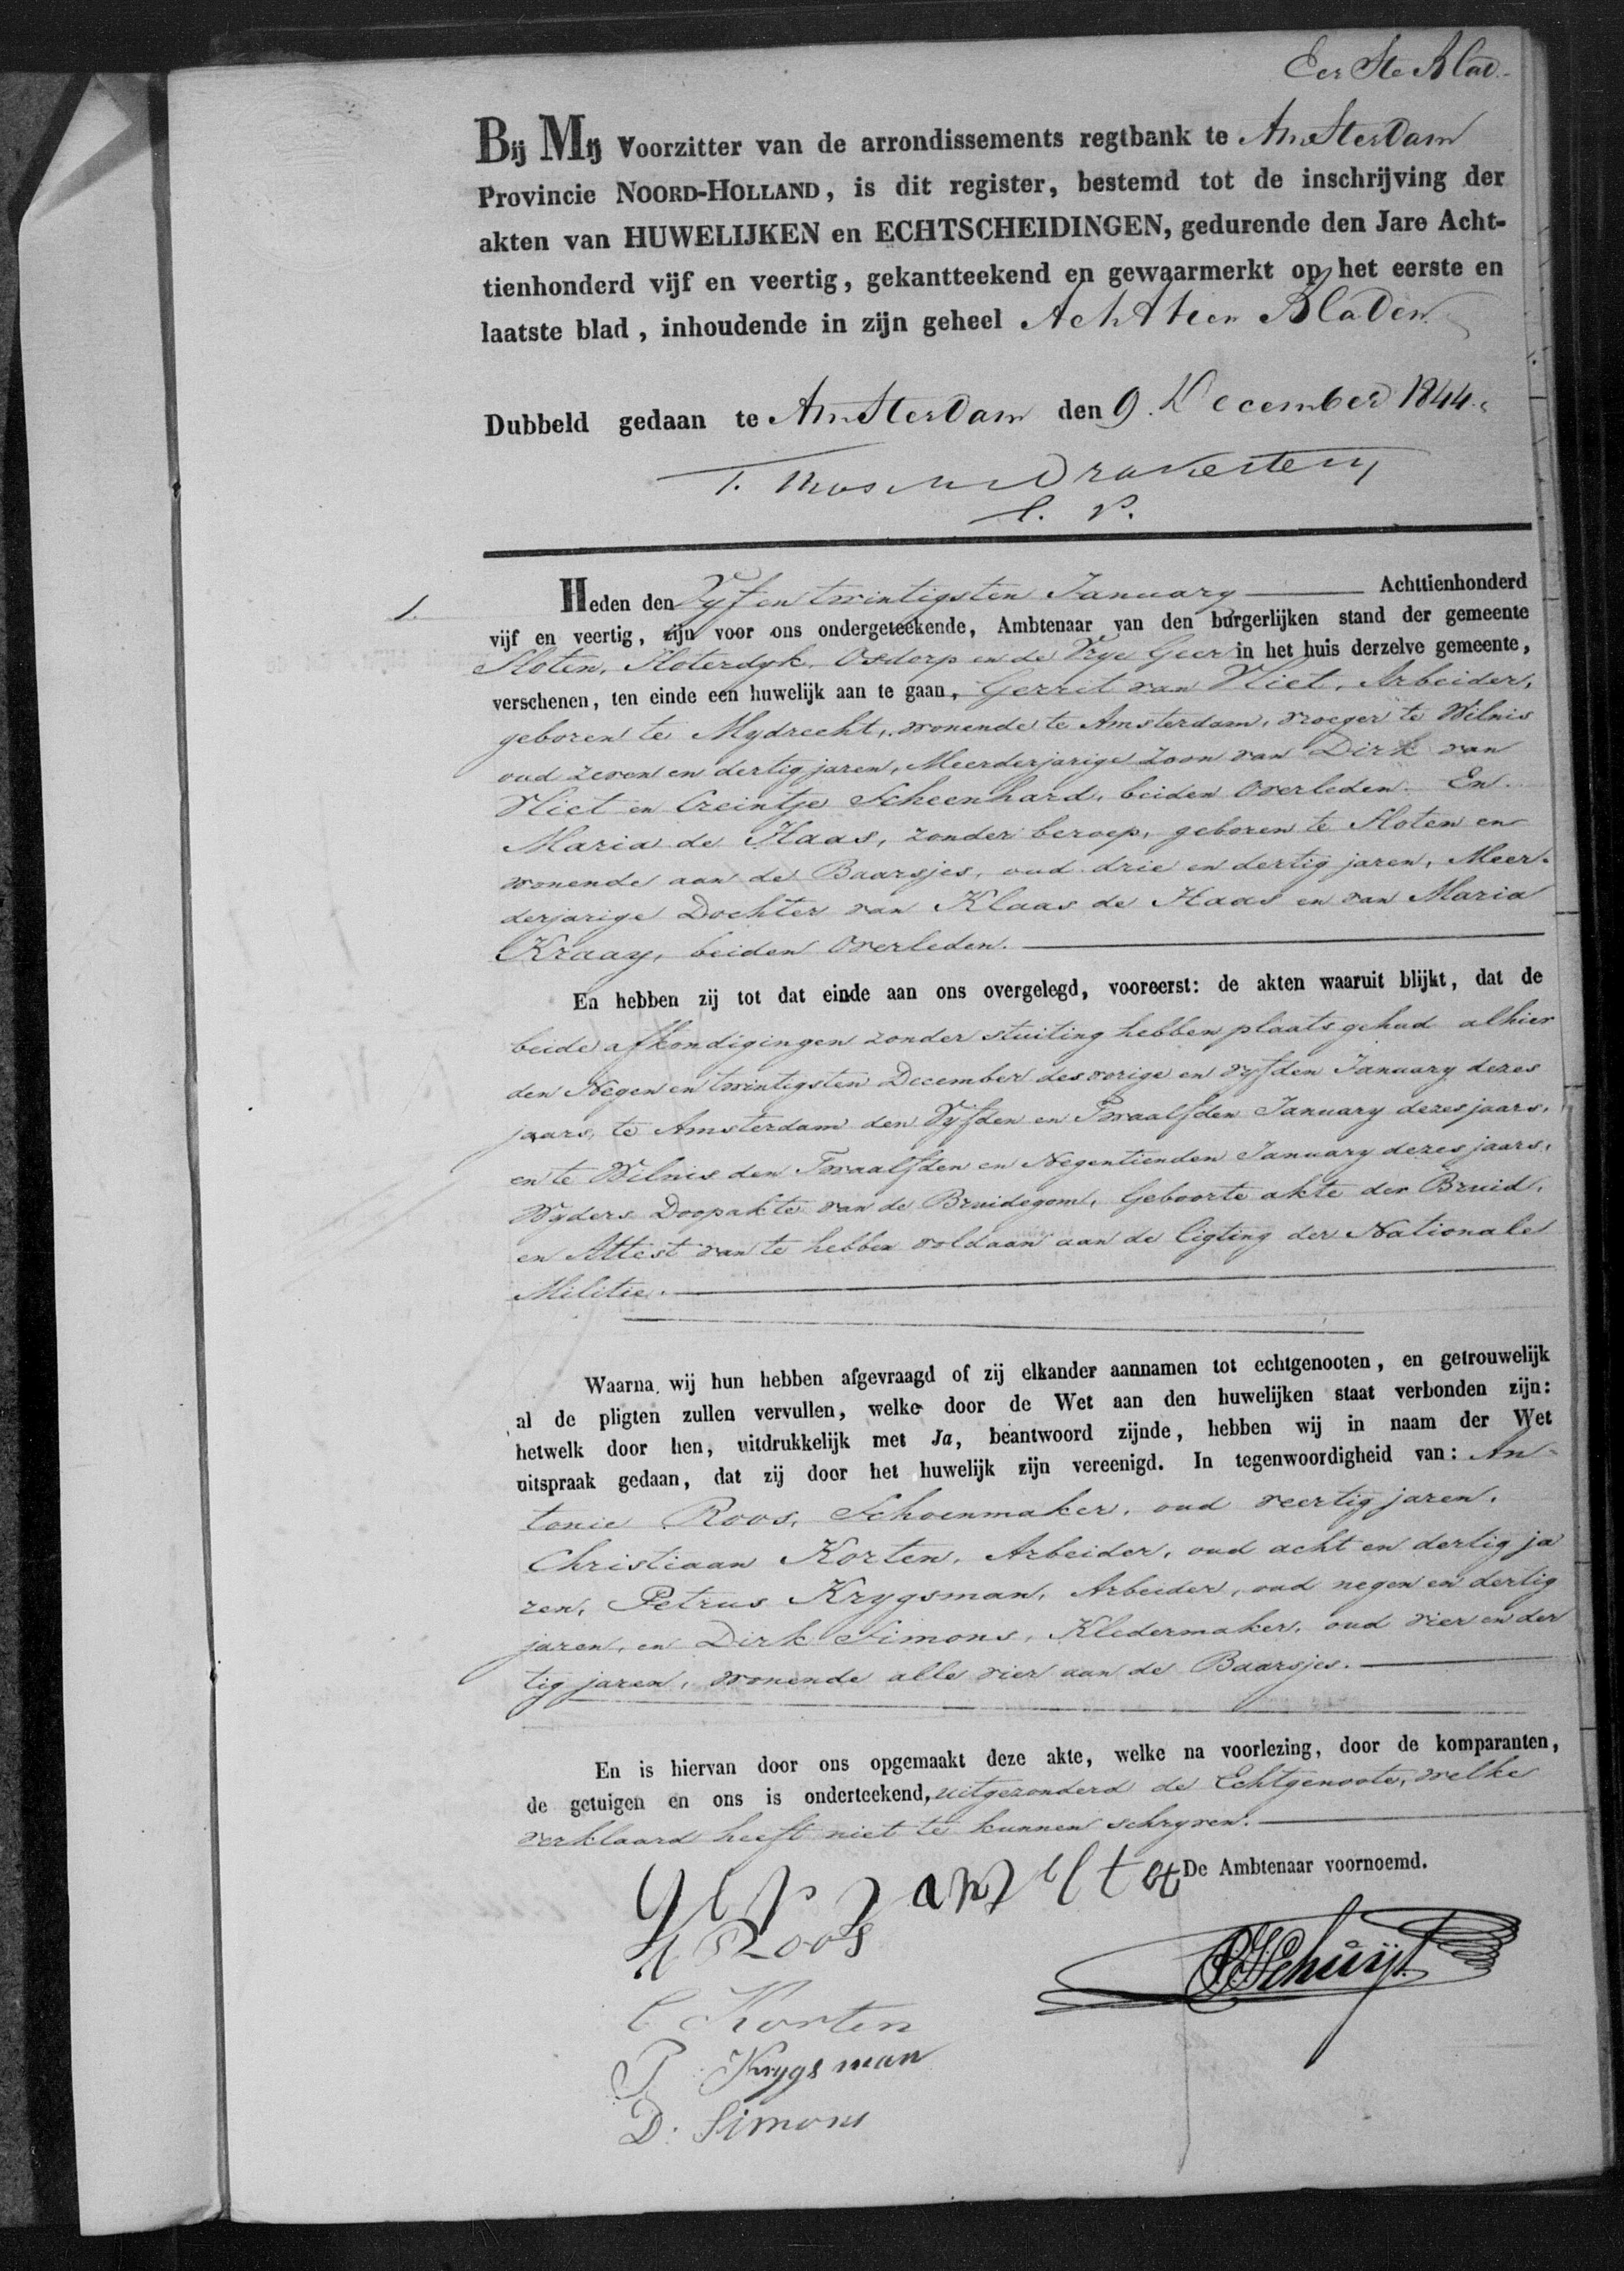 Eerste Blad.
Bij Mij Voorzitter van de arrondissements regtbank te Amsterdam
Provincie NOORD-HOLLAND, is dit register, bestemd tot de inschrijving der
akten van HUWELIJKEN en ECHTSCHEIDINGEN, gedurende den Jare Acht-
tienhonderd vijf en veertig, gekantteekend en gewaarmerkt op het eerste en
laatste blad, inhoudende in zijn geheel Achttien Bladen
Dubbeld gedaan te Amsterdam den 9. December 1844.
1.
Heden den Vyf en twintigsten January Achttienhonderd
vijf en veertig, zijn voor ons ondergeteekende, Ambtenaar van den burgerlijken stand der gemeente
Sloten, Sloterdyk, Osdorp en de Vrye Geer in het huis derzelve gemeente,
verschenen, ten einde een huwelijk aan te gaan, Gerrit van Vliet, Arbeider,
geboren te Mydrecht, wonende te Amsterdam, vroeger te Wilnis
oud zeven en dertig jaren, Meerderjarige Zoon van Dirk van
Vliet en Creintje Scheenhard, beiden Overleden. En
Maria de Haas, zonder beroep, geboren te Sloten en
wonende aan de Baarsjes, oud drie en dertig jaren, Meer-
derjarige Dochter van Klaas de Haas en van Maria
Kraay, beiden Overleden.
En hebben zij tot dat einde aan ons overgelegd, vooreerst: de akten waaruit blijkt, dat de
beide afkondigingen zonder stuiting hebben plaats gehad alhier
den Negen en twintigsten December des vorige en vyfden January dezes
jaars, te Amsterdam den Vyfden en Twaalfden January dezes jaars,
en te Wilnis den Twaalfden en Negentienden January dezes jaars,
Wyders Doopakte van de Bruidegom, Geboorte akte der Bruid,
en Attest van te hebben voldaan aan de ligting der Nationale
Militie.
Waarna wij hun hebben afgevraagd of zij elkander aannamen tot echtgenooten, en getrouwelijk
al de pligten zullen vervullen, welke door de Wet aan den huwelijken staat verbonden zijn:
hetwelk door hen, uitdrukkelijk met Ja, beantwoord zijnde, hebben wij in naam der Wet
uitspraak gedaan, dat zij door het huwelijk zijn vereenigd. In tegenwoordigheid van: An-
tonie Roos, Schoenmaker, oud veertig jaren,
Christiaan Korten, Arbeider, oud acht en dertig ja
ren, Petrus Krygsman, Arbeider, oud negen en dertig
jaren, en Dirk Simons, Kledermaker, oud vier en der
tig jaren, wonende alle vier aan de Baarsjes.
En is hiervan door ons opgemaakt deze akte, welke na voorlezing, door de komparanten,
de getuigen en ons is onderteekend, uitgezonderd de Echtgenoote, welke
verklaard heeft niet te kunnen schryven.
De Ambtenaar voornoemd.
A Roos
C Korten
P Krygsman
D. Simons